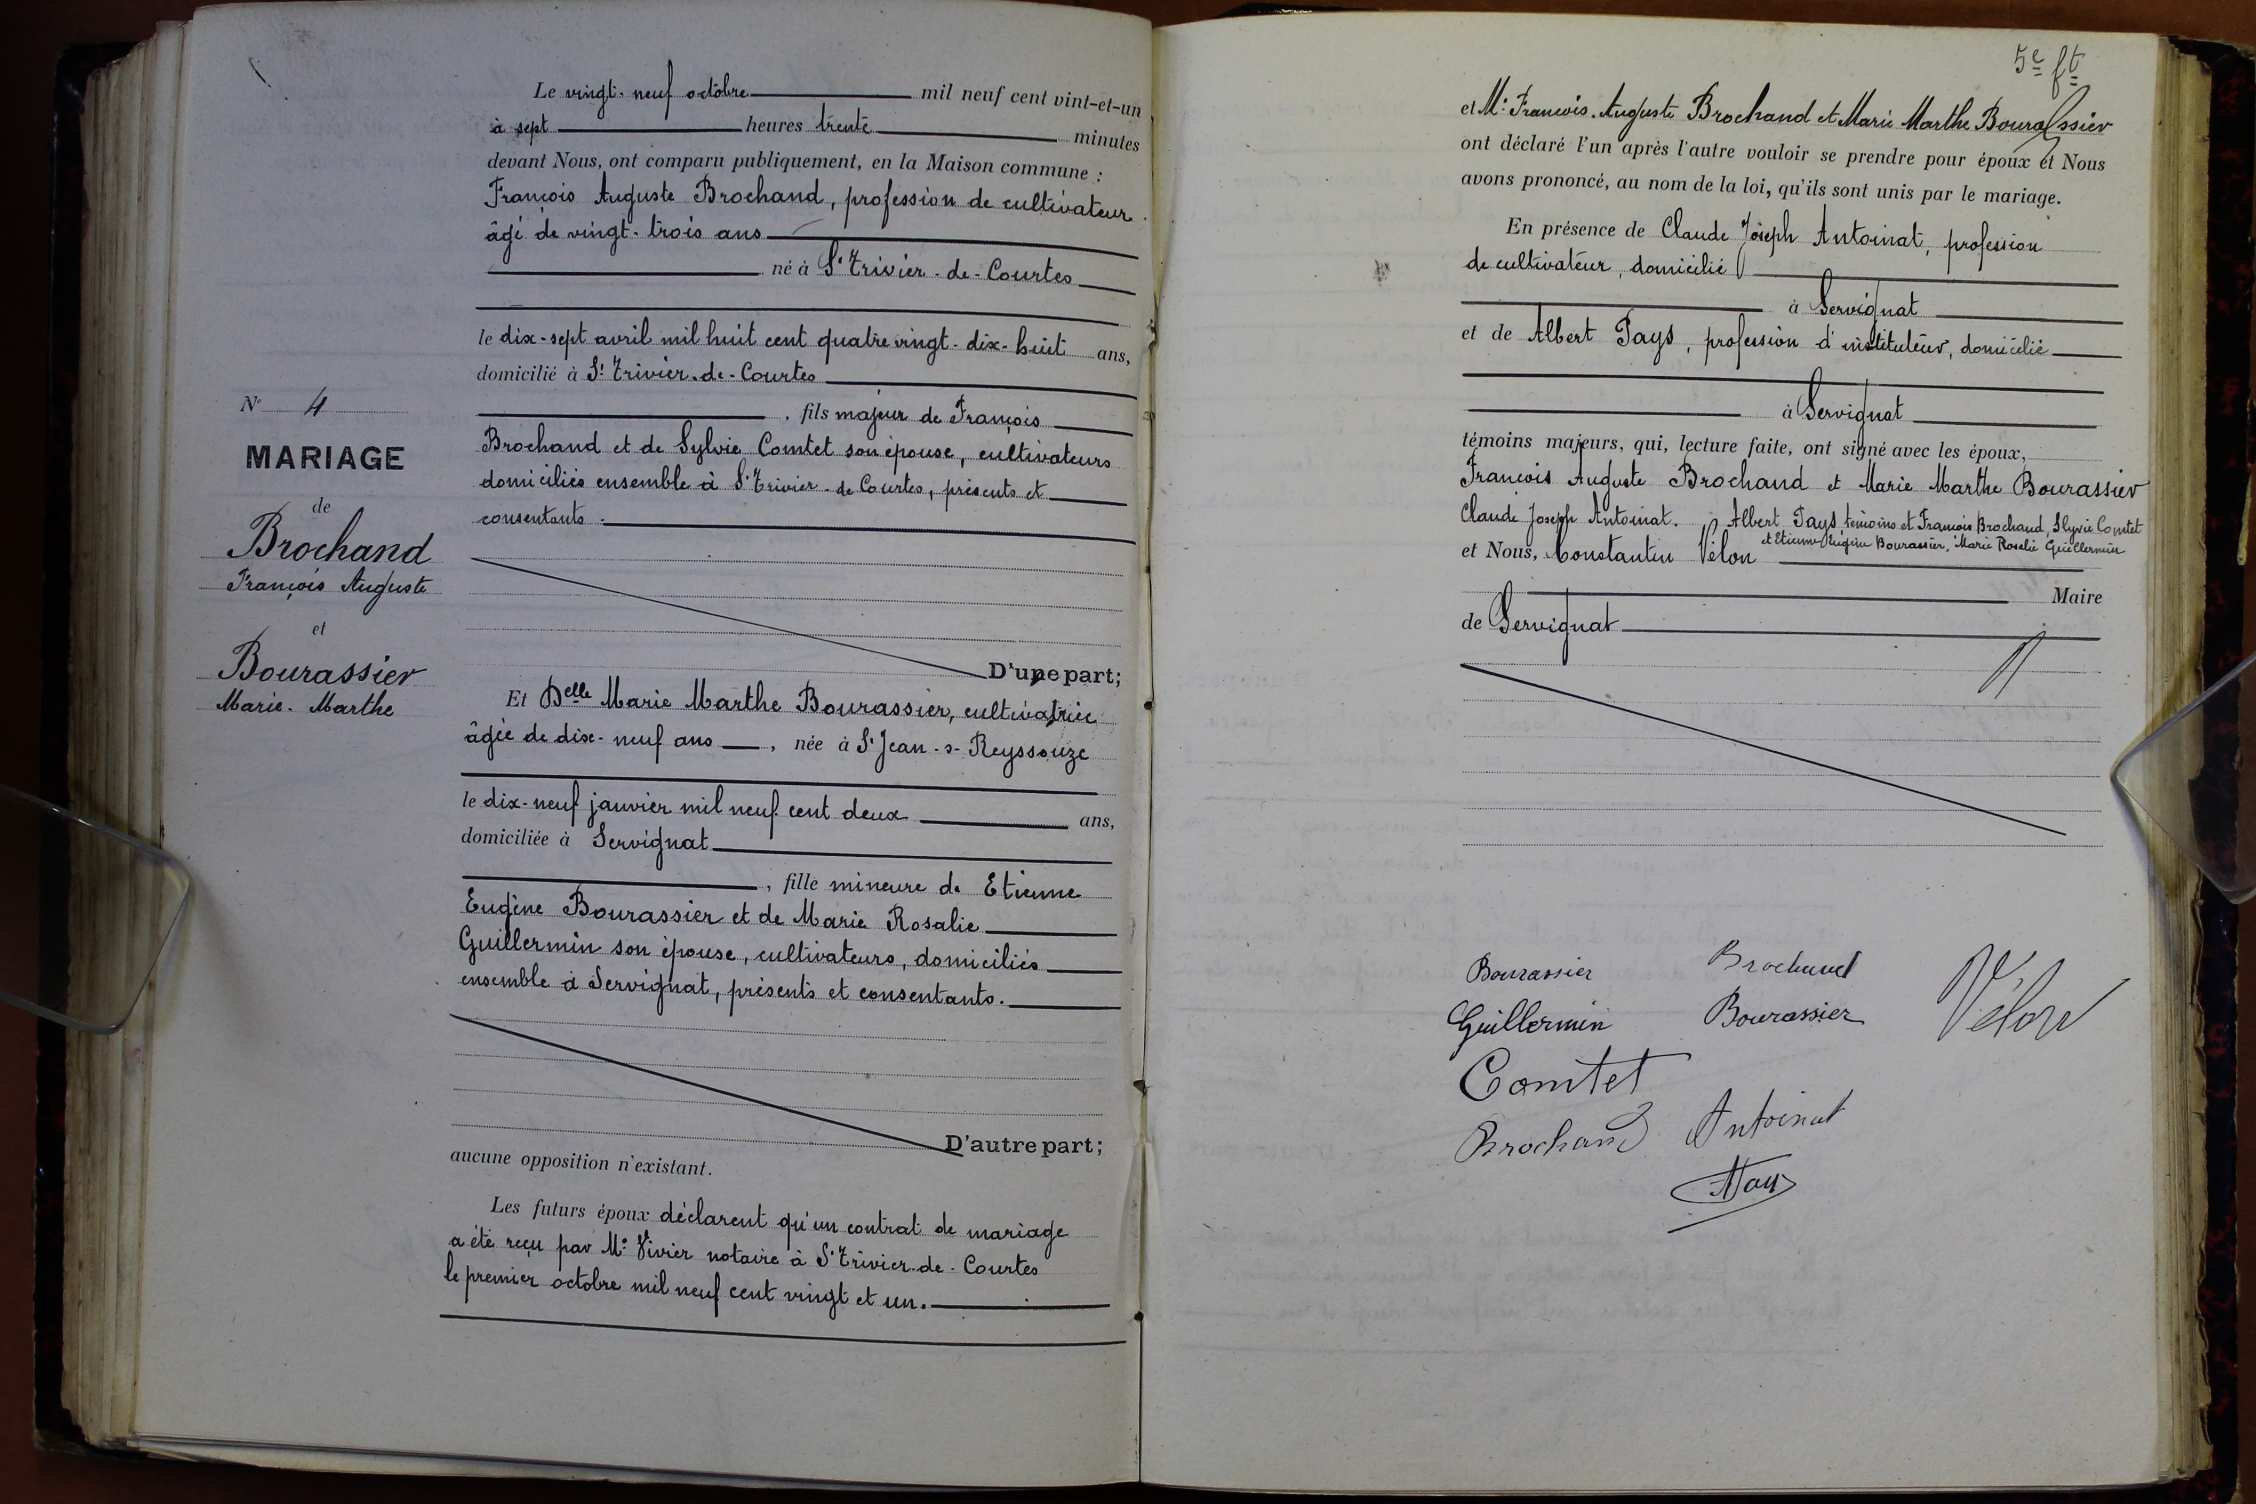 Le vingt-neuf octobre mil neuf cent vint-et-un
à sept heures trente minutes
devant Nous, ont comparu publiquement, en la Maison commune :
François Auguste Brochand, profession de cultivateur
âgé de vingt-trois ans
né à St Trivier-de-Courtes
le dix-sept avril mil huit cent quatre vingt-dix-huit ans,
domicilié à St Trivier-de-Courtes
, fils majeur de François
Brochand et de Sylvie Comtet son épouse, cultivateurs
domiciliés ensemble à St Trivier-de Courtes, présents et
consentants.
D'une part;
N° 4
MARIAGE
de
Brochand
François Auguste
et
Bourassier
Marie-Marthe
Et Delle Marie Marthe Bourassier, cultivatrice
âgée de dix-neuf ans, née à St Jean-s-Reyssouze
le dix-neuf janvier mil neuf cent deux ans,
domiciliée à Servignat
, fille mineure de Etienne
Eugène Bourassier et de Marie Rosalie
Guillermin son épouse, cultivateurs, domiciliés
ensemble à Servignat, présents et consentants.
D'autre part;
aucune opposition n'existant.
Les futurs époux déclarent qu'un contrat de mariage
a été reçu par Me Vivier notaire à St Trivier-de-Courtes
le premier octobre mil neuf cent vingt et un.
5e ft
et Mr François-Auguste Brochand et Marie Marthe Bourassier
ont déclaré l'un après l'autre vouloir se prendre pour époux et Nous
avons prononcé, au nom de la loi, qu'ils sont unis par le mariage.
En présence de Claude Joseph Antoinat, profession
de cultivateur, domicilié
à Servignat
et de Albert Pays, profession d'instituteur, domicilié
à Servignat
témoins majeurs, qui, lecture faite, ont signé avec les époux,
François Auguste Brochand et Marie Marthe Bourassier
Claude Joseph Antoinat. Albert Pays témoins et François Brochand, Slyvie Comtet
et Etienne Eugène Bourassier, Marie Rosalie Guillermin
et Nous, Constantin Vélon
Maire
de Servignat
Bourassier Brochand Vélon
Guillermin Bourassier
Comtet
Brochand Antoinat